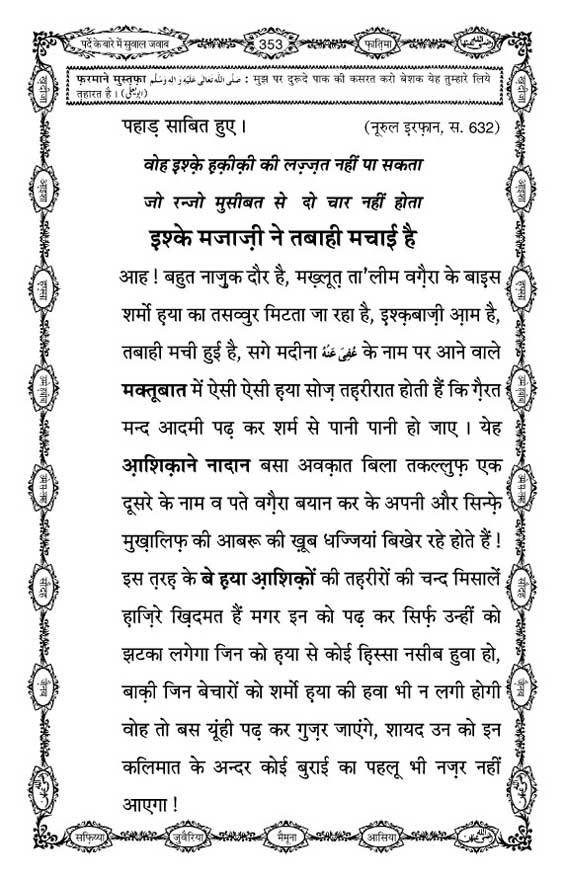 पर्दे के बारे में सुवाल जवाब
353
फ़ातिमा
फ़रमाने मुस्तफ़ा صَلَّى اللهُ تَعَالٰى عَلَيْهِ وَاٰلِهٖ وَسَلَّم : मुझ पर दुरूदे पाक की कसरत करो बेशक येह तुम्हारे लिये
तहारत है । (ابو یعلٰی)
पहाड़ साबित हुए । (नूरुल इरफ़ान, स. 632)
वोह इश्क़े ह़क़ीक़ी की लज़्ज़त नहीं पा सकता
जो रन्जो मुसीबत से दो चार नहीं होता
इश्क़े मजाज़ी ने तबाही मचाई है
आह ! बहुत नाज़ुक दौर है, मख़्लूत़ ता'लीम वग़ैरा के बाइस
शर्मो ह़या का तसव्वुर मिटता जा रहा है, इश्क़बाज़ी आ़म है,
तबाही मची हुई है, सगे मदीना عُفِیَ عَنْهُ के नाम पर आने वाले
मक्तूबात में ऐसी ऐसी ह़या सोज़ तह़रीरात होती हैं कि ग़ैरत
मन्द आदमी पढ़ कर शर्म से पानी पानी हो जाए । येह
आ़शिक़ाने नादान बसा अवक़ात बिला तकल्लुफ़ एक
दूसरे के नाम व पते वग़ैरा बयान कर के अपनी और सिन्फ़े
मुख़ालिफ़ की आबरू की ख़ूब धज्जियां बिखेर रहे होते हैं !
इस त़रह़ के बे ह़या आ़शिक़ों की तह़रीरों की चन्द मिसालें
ह़ाज़िरे ख़िदमत हैं मगर इन को पढ़ कर सिर्फ़ उन्हीं को
झटका लगेगा जिन को ह़या से कोई हि़स्सा नसीब हुवा हो,
बाक़ी जिन बेचारों को शर्मो ह़या की हवा भी न लगी होगी
वोह तो बस यूंही पढ़ कर गुज़र जाएंगे, शायद उन को इन
कलिमात के अन्दर कोई बुराई का पहलू भी नज़र नहीं
आएगा !
सफ़िय्या
जुवैरिया
मैमूना
आसिया